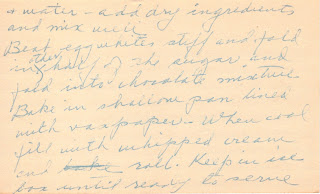 & water - add dry ingredients
and mix well
Beat egg whites stiff and fold
in other half of the sugar and
fold into chocolate mixture
Bake in shallow pan lined
with waxpaper - When cool
fill with whipped cream
and bake roll. Keep in ice
box until ready to serve